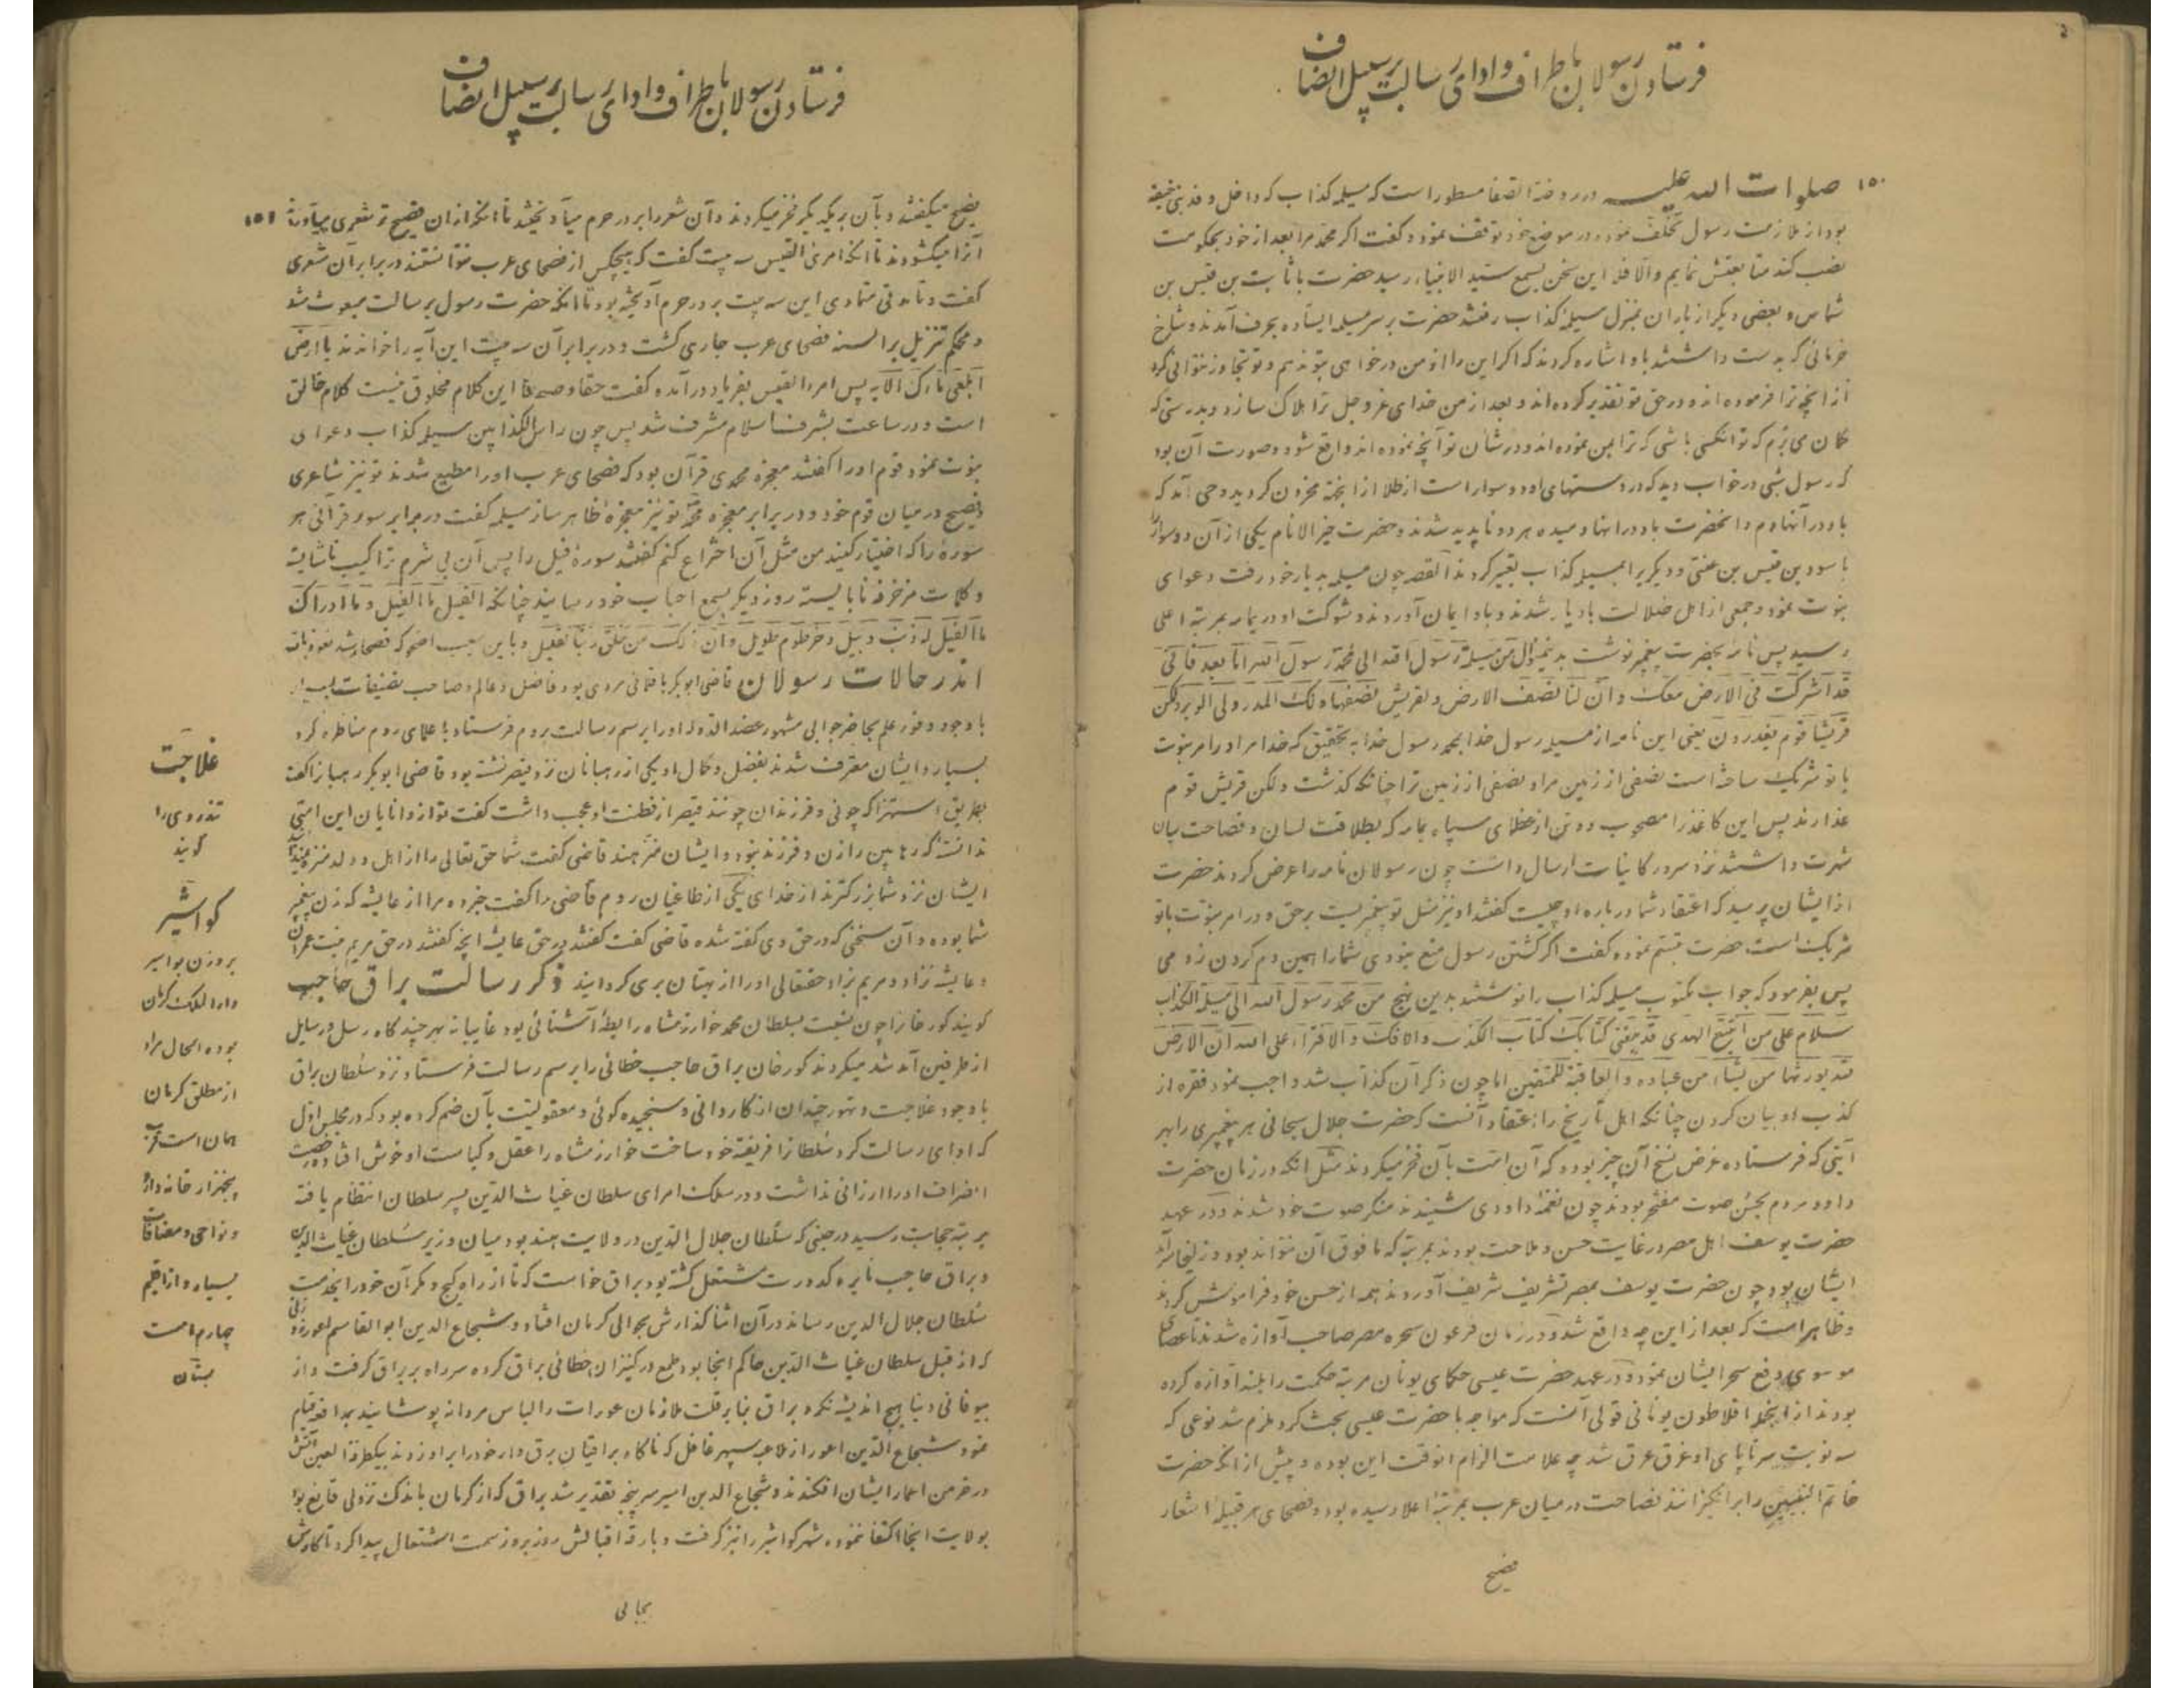 فرستادن رسولان باطراف و ادای رسالت بر سبیل انصاف
۱۵۰
صلوات الله علیه در روضة الصفا مسطور است که مسیلمه کذاب که داخل وفد بنی حنیفه
بود از ملازمت رسول تخلف نموده در موضع خود توقف نمود و گفت اگر محمد مرا بعد از خود بحکومت
نصب کند متابعتش نمایم والا فلا این سخن بسمع سید الانبیاء رسید حضرت با ثابت بن قیس بن
شماس و بعضی دیگر از یاران بمنزل مسیلمه کذاب رفتند حضرت بر سر مسیلمه ایستاده بحرف آمدند و شاخ
خرمائی که بدست داشتند باو اشاره کردند که اگر این را از من درخواهی بتو ندهم و تو تجاوز نتوانی کرد
از آنچه ترا فرموده اند و در حق تو تقدیر کرده اند و بعد از من خدای عز و جل ترا هلاک سازد و بدرستی که
گمان می برم که تو آنکسی باشی که ترا بمن نموده اند و در شان تو آنچه نموده اند واقع شود و صورت آن بود
که رسول شبی در خواب دید که در دستهای او دو سوار است از طلا از اینجهة محزون گردید وحی آمد که
باد در آنها دم و آنحضرت باد در آنها دمیده هر دو ناپدید شدند و حضرت خیر الانام یکی از آن دو سوار را
باسود بن قیس بن عنسی و دیگریرا بمسیلمه کذاب تعبیر کردند القصه چون مسیلمه بدیار خود رفت دعوای
نبوت نمود و جمعی از اهل ضلالت باو یار شدند و باو ایمان آوردند و شوکت او در یمامه بمرتبه اعلی
رسید پس نامه بحضرت پیغمبر نوشت بدینمنوال من مسیلمة رسول الله الی محمد رسول الله اما بعد فانی
قد اشرکت فی الارض معک و ان لنا نصف الارض و لقریش نصفها لک المدر ولی الوبر ولکن
قریشا قوم یغدرون یعنی این نامه از مسیلمه رسول خدا بمحمد رسول خدا به تحقیق که خدا مرا در امر نبوت
با تو شریک ساخته است نصفی از زمین مرا و نصفی از زمین ترا چنانکه گذشت ولکن قریش قوم
غدارند پس این کاغذ را مصحوب دو تن از عظمای سپاه یمامه که بطلاقت لسان و فصاحت بیان
شهرت داشتند نزد سرور کاینات ارسال داشت چون رسولان نامه را عرض کردند حضرت
از ایشان پرسید که اعتقاد شما درباره او چیست گفتند او نیز مثل تو پیغمبریست برحق و در امر نبوت با تو
شریک است حضرت تبسم نموده گفت اگر کشتن رسول منع نبودی شما را همین دم گردن زدمی
پس بفرمود که جواب مکتوب مسیلمه کذاب را نوشتند بدین نهج من محمد رسول الله الی مسیلمة الکذاب
سلام علی من اتبع الهدی قد بلغنی کتابک کتاب الکذب والافک والافتراء علی الله ان الارض
لله یورثها من یشاء من عباده والعاقبة للمتقین اما چون ذکر آن کذاب شد واجب نمود فقره از
کذب او بیان کردن چنانکه اهل تاریخ را اعتقاد آنست که حضرت جلال سبحانی هر پیغمبری را بهر
آیتی که فرستاده غرض نسخ آن چیز بوده که آن امت بآن فخر میکردند مثل آنکه در زمان حضرت
داود مردم بحسن صوت مفتخر بودند چون نغمه داودی شنیدند منکر صوت خود شدند و در عهد
حضرت یوسف اهل مصر در غایت حسن و ملاحت بودند بمرتبه که مافوق آن نتواند بود و زلیخا سرآمد
ایشان بود چون حضرت یوسف بمصر تشریف شریف آوردند همه از حسن خود فراموش کردند
و ظاهر است که بعد از این چه واقع شد و در زمان فرعون سحره مصر صاحب آوازه شدند تا عصای
موسوی رفع سحر ایشان نمود و در عهد حضرت عیسی حکمای یونان مرتبه حکمت را بلند آوازه کرده
بودند از اینجمله افلاطون یونانی قولی آنست که مواجهه با حضرت عیسی بحث کرد ملزم شد نوعی که
سه نوبت سر تا پای او غرق عرق شد چه علامت الزام آنوقت این بوده و پیش از آنکه حضرت
خاتم النبیین را برانگیزانند فصاحت در میان عرب بمرتبه اعلا رسیده بود و فصحای هر قبیله اشعار
فصیح
فرستادن رسولان باطراف و ادای رسالت بر سبیل انصاف
۱۵۱
فصیح میگفتند و بآن بر یکدیگر فخر میکردند و آن شعر را بر در حرم میآویختند تا آنکه از آن فصیح تر شعری میآوردند
آنرا میگشودند تا آنکه امرئ القیس سه بیت گفت که هیچکس از فصحای عرب نتوانستند در برابر آن شعری
گفت و تا مدتی متمادی این سه بیت بر در حرم آویخته بود تا آنکه حضرت رسول برسالت مبعوث شد
و محکم تنزیل بر السنه فصحای عرب جاری گشت و در برابر آن سه بیت این آیه را خواندند یا ارض
ابلعی ماءک الآیه پس امرء القیس بفریاد درآمده گفت حقا و صدقا این کلام مخلوق نیست کلام خالق
است و در ساعت بشرف اسلام مشرف شد پس چون راس الکذابین مسیلمه کذاب دعوای
نبوت نمود قوم او را گفتند معجزه محمدی قرآن بود که فصحای عرب او را مطیع شدند تو نیز شاعری
و فصیح در میان قوم خود و در برابر معجزه محمد تو نیز معجزه ظاهر ساز مسیلمه گفت در برابر سور قرآنی هر
سوره را که اختیار کنید من مثل آن اختراع کنم گفتند سوره فیل را پس آن بی شرم تراکیب ناشایسته
و کلمات مزخرفه نابایسته روز دیگر بسمع احباب خود رسانید چنانکه الفیل ما الفیل و ما ادراک
ما الفیل له ذنب وبیل و خرطوم طویل و ان ذلک من خلق ربنا لقلیل و باین سبب اضحوکه فصحا شد نعوذ بالله
اندر حالات رسولان قاضی ابوبکر باقلانی مردی بود فاضل و عالم و صاحب تصنیفات بسیار
با وجود وفور علم بحاضر جوابی مشهور عضد الدوله او را برسم رسالت بروم فرستاد با علمای روم مناظره کرد
بسیار و ایشان معترف شدند بفضل و کمال او یکی از رهبانان نزد قیصر نشسته بود قاضی ابوبکر رهبانرا گفت
بطریق استهزا که چونی و فرزندان چونند قیصر از فطنت او عجب داشت گفت تو از دانایان این امتی
ندانسته که رهابین را زن و فرزند نبود و ایشان منزهند قاضی گفت شما حق تعالی را از اهل و ولد منزه نمیدانید
ایشان نزد شما بزرگترند از خدای یکی از طاغیان روم قاضی را گفت خبر ده مرا از عایشه که زن پیغمبر
شما بوده و آن سخنی که در حق وی گفته شده قاضی گفت گفتند در حق عایشه آنچه گفتند در حق مریم بنت عمران
و عایشه نزاد و مریم بزاد حقتعالی او را از بهتان بری گردانید ذکر رسالت براق حاجب
گویند گورخانرا چون نسبت بسلطان محمد خوارزمشاه رابطه آشنائی بود غایبانه بهر چند گاه رسل و رسایل
از طرفین آمد شد میکردند گورخان براق حاجب خطائی را برسم رسالت فرستاد نزد سلطان براق
با وجود غلاجت و تهور چندان از کاردانی و سنجیده گوئی و معقولیت بآن ضم کرده بود که در مجلس اول
که ادای رسالت کرد سلطانرا فریفته خود ساخت خوارزمشاه را عقل و کیاست او خوش افتاد رخصت
انصراف او را ارزانی نداشت و در سلک امرای سلطان غیاث الدین پسر سلطان انتظام یافته
بمرتبه حجابت رسید در حینی که سلطان جلال الدین در ولایت هند بود میان وزیر سلطان غیاث الدین
و براق حاجب نایره کدورت مشتعل گشته بود براق خواست که تا از راه کیج و مکران خود را بخدمت
سلطان جلال الدین رساند در آن اثنا گذارش بحوالی کرمان افتاد و شجاع الدین ابوالقاسم اعور
که از قبل سلطان غیاث الدین حاکم آنجا بود طمع در کنیزان خطائی براق کرده سر راه بر براق گرفت و از
بیوفائی دنیا هیچ اندیشه نکرد براق بنابر قلت ملازمان عورات را لباس مردانه پوشانیده بمدافعه قیام
نمود شجاع الدین اعور از ملاعبه سپهر غافل که ناگاه براقیان برق وار خود را بر او زدند بیکطرفة العین آتش
در خرمن اعمار ایشان افکندند و شجاع الدین اسیر سرپنجه تقدیر شد براق که از کرمان باندک نزولی قانع بود
بولایت آنجا اکتفا ننموده شهر گواشیر را نیز گرفت و بارقه اقبالش روز بروز سمت اشتعال پیدا کرد تا کارش
غلاجت
تندروی را
گویند
گواشیر
بر وزن بواسیر
دارالملک کرمان
بوده الحال مراد
از مطلق کرمان
همان است قریب
پنجهزار خانه دارد
و نواحی و مضافات
بسیار و از اقلیم
چهارم است
بستان
بجائی